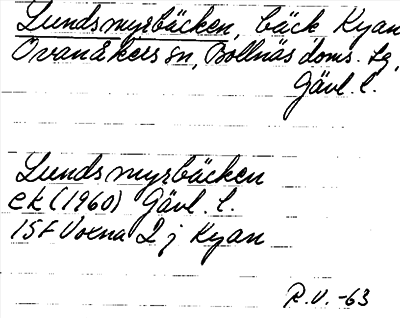 Lundsmyrbäcken, bäck Kyan
Ovanåkers sn, Bollnäs doms. lg,
Gävl. l.
Lundsmyrbäcken
ek (1960) Gävl. l.
15F Voxna 2 j Kyan
R.V. -63